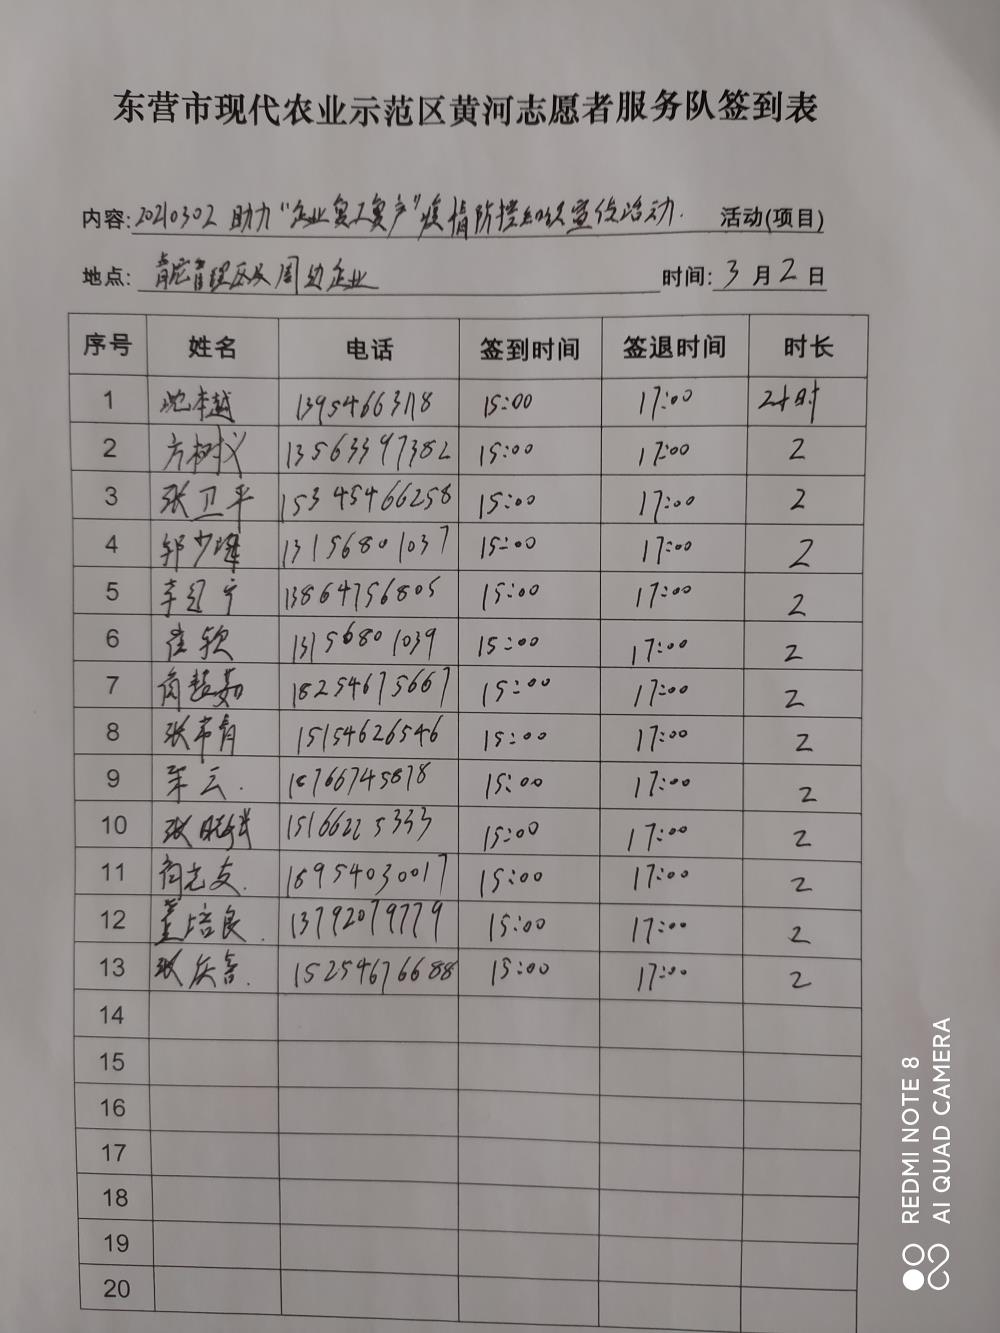 东营市现代农业示范区黄河志愿者服务队签到表
内容:20210302 助力“企业复工复产”疫情防控知识宣传活动. 活动(项目)
地点: 管理区及周边企业 时间: 3 月 2 日
序号 姓名 电话 签到时间 签退时间 时长
1 15:00 17:00 2小时
2 方树义 13563397382 15:00 17:00 2
3 张卫平 15345466258 15:00 17:00 2
4 郭少峰 13156801037 15:00 17:00 2
5 13864756805 15:00 17:00 2
6 崔钦 13156801039 15:00 17:00 2
7 18254675667 15:00 17:00 2
8 15154626546 15:00 17:00 2
9 18766745878 15:00 17:00 2
10 15166225333 15:00 17:00 2
11 18954030017 15:00 17:00 2
12 董培良. 13792079779 15:00 17:00 2
13 张庆. 15254676688 15:00 17:00 2
14
15
16
17
18
19
20
REDMI NOTE 8
AI QUAD CAMERA